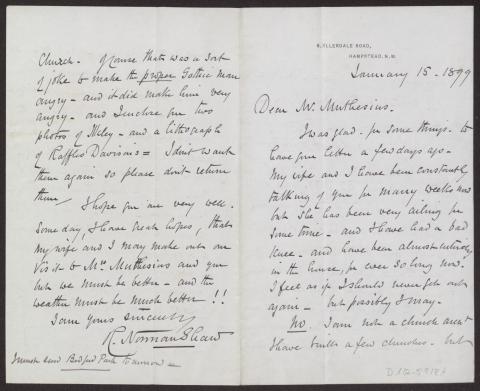 6, ELLERDALE ROAD,
HAMPSTEAD. N.W.
January 15 - 1899
Dear Mr. Muthesius.
I was glad - for some things - to
have your letter a few days ago -
My wife and I have been constantly
talking of you for many weeks now
but she has been very ailing for
some time - and I have had a bad
knee - and have been almost entirely
in the house, for ever so long now.
I feel as if I should never get out
again - but possibly I may.
No. I am not a church
I have built a few churches - but
Church - Of course that was a sort
of joke to make the proper Gothic man
angry - and it did make him very
angry - and I enclose you two
photos of Ilkley - and a lithograph
of Raffles Davison's = I don't want
them again so please don't return
them - I hope you are very well.
Some day, I have great hopes, that
my wife and I may make out our
visit to Mrs. Muthesius and you
but we must be better - and the
weather must be much better !!
I am yours sincerely
R. Norman Shaw
Bedford Park